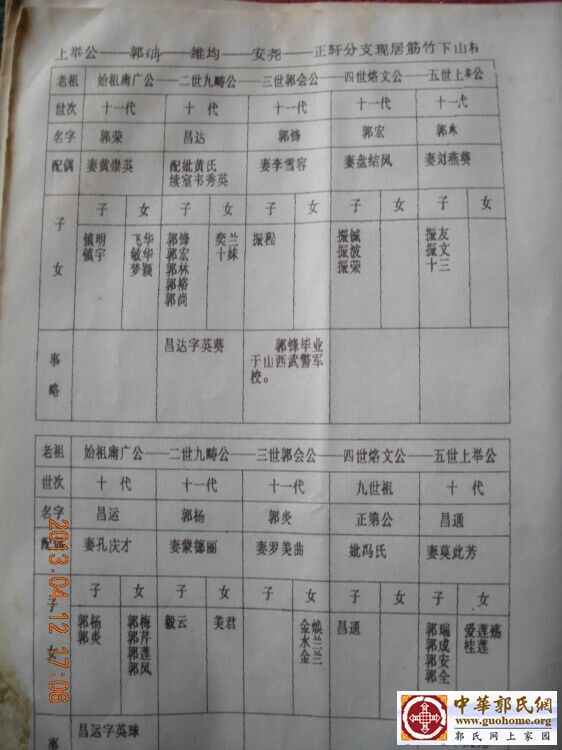 上举公——郭 ——维均——安尧——正轩分支现居筋竹下山村
老祖 始祖庸广公——二世九畴公——三世郭会公——四世烙文公——五世上举公
世次 十一代 十代 十一代 十一代 十一代
名字 郭荣 昌达 郭锋 郭宏 郭木
配偶 妻黄崇英 配妣黄氏 续室韦秀英 妻李雪容 妻盘结风 妻刘燕葵
子女 子 女 子 女 子 女 子 女 子 女
镇明 飞华 郭锋 奕兰 振程 振铖 振友
镇宇 敏华 郭宏 十妹 振波 振文
梦颖 郭林 振荣 十三
郭裕
郭尚
事略 昌达字英葵 郭锋毕业于山西武警军校。
老祖 始祖庸广公——二世九畴公——三世郭会公——四世烙文公——五世上举公
世次 十代 十一代 十一代 九世祖 十代
名字 昌运 郭杨 郭炎 正第公 昌通
配偶 妻孔庆才 妻蒙德丽 妻罗美曲 妣冯氏 妻莫此芳
子女 子 女 子 女 子 女 子 女 子 女
郭杨 郭梅 毅云 美君 金焕 昌通 郭瑞 爱莲殇
郭炎 郭芹 水兰 郭成 桂莲
郭莲 金兰 郭安
郭风 郭全
事 昌运字英球
2013.04.12 17:06
中華郭氏網
www.guohome.org
郭氏网上家园